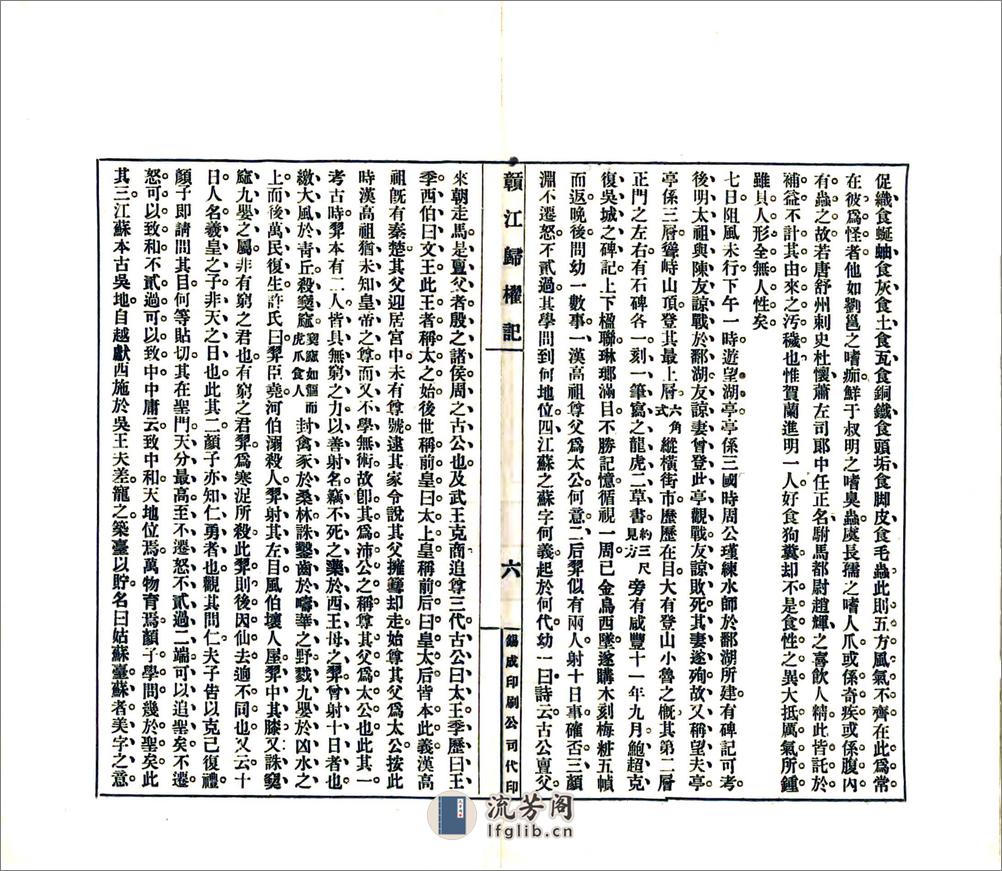 促織食蜒蚰食灰食土食瓦食銅鐵食頭垢食脚皮食毛蟲此則五方風氣不齊在此爲常
在彼爲怪者他如劉邕之嗜痂鮮于叔明之嗜臭蟲虞長孺之嗜人爪或係奇疾或係腹內
有蟲之故若唐舒州刺史杜懷蕭左司郎中任正名駙馬都尉趙輝之喜飲人精此皆託於
補益不計其由來之汚穢也惟賀蘭進明一人好食狗糞却不是食性之異大抵厲氣所鍾
雖具人形全無人性矣
七日阻風未行下午一時遊望湖亭亭係三國時周公瑾練水師於鄱湖所建有碑記可考
後明太祖與陳友諒戰於鄱湖友諒妻曾登此亭觀戰友諒敗死其妻遂殉故又稱望夫亭
亭係三層聳峙山頂登其最上層六角式縱橫街市歷歷在目大有登山小魯之槪其第二層
正門之左右有石碑各一刻一筆寫之龍虎二草書約三尺見方旁有咸豐十一年九月鮑超克
復吳城之碑記上下楹聯琳瑯滿目不勝記憶循視一周已金烏西墜遂購木刻梅粧五幀
而返晚後問幼一數事一漢高祖尊父爲太公何意二后羿似有兩人射十日事確否三顏
淵不遷怒不貳過其學問到何地位四江蘇之蘇字何義起於何代幼一曰詩云古公亶父
贛江歸櫂記
六
錫成印刷公司代印
來朝走馬是亶父者殷之諸侯周之古公也及武王克商追尊三代古公曰太王季歷曰王
季西伯曰文王此王者稱太之始後世稱前皇曰太上皇稱前后曰皇太后皆本此義漢高
祖旣有秦楚其父迎居宮中未有尊號遂其家令說其父擁篲却走始尊其父爲太公按此
時漢高祖猶未知皇帝之尊而又不學無術故卽其爲沛公之稱尊其父爲太公也此其一
考古時羿本有二人皆具無窮之力以善射名竊不死之藥於西王母之羿曾射十日者也
繳大風於青丘殺窫窳窫窳如貙而虎爪食人封禽豕於桑林誅鑿齒於疇華之野戮九嬰於凶水之
上而後萬民復生許氏曰羿臣堯河伯溺殺人羿射其左目風伯壞人屋羿中其膝又誅窫
窳九嬰之屬非有窮之君也有窮之君羿爲寒浞所殺此羿則後因仙去適不同也又云十
日人名羲皇之子非天之日也此其二顏子亦知仁勇者也觀其問仁夫子告以克己復禮
顏子卽請問其目何等貼切其在聖門天分最高至不遷怒不貳過二端可以追聖矣不遷
怒可以致和不貳過可以致中中庸云致中和天地位焉萬物育焉顏子學問幾於聖矣此
其三江蘇本古吳地自越獻西施於吳王夫差寵之築臺以貯名曰姑蘇臺蘇者美字之意
流芳阁
lfglib.cn